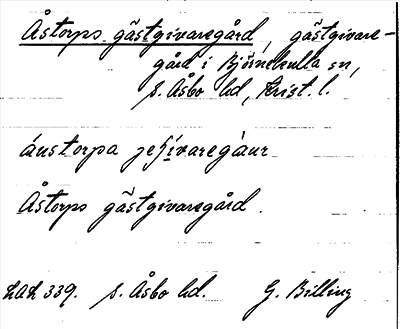 Åstorps gästgivaregård, gästgivare-
gård i Björnekulla sn,
S. Åsbo hd, Krist. l.
áustorpa jeʃívaregàur
Åstorps gästgivaregård.
LAL 339. S. Åsbo hd. G. Billing